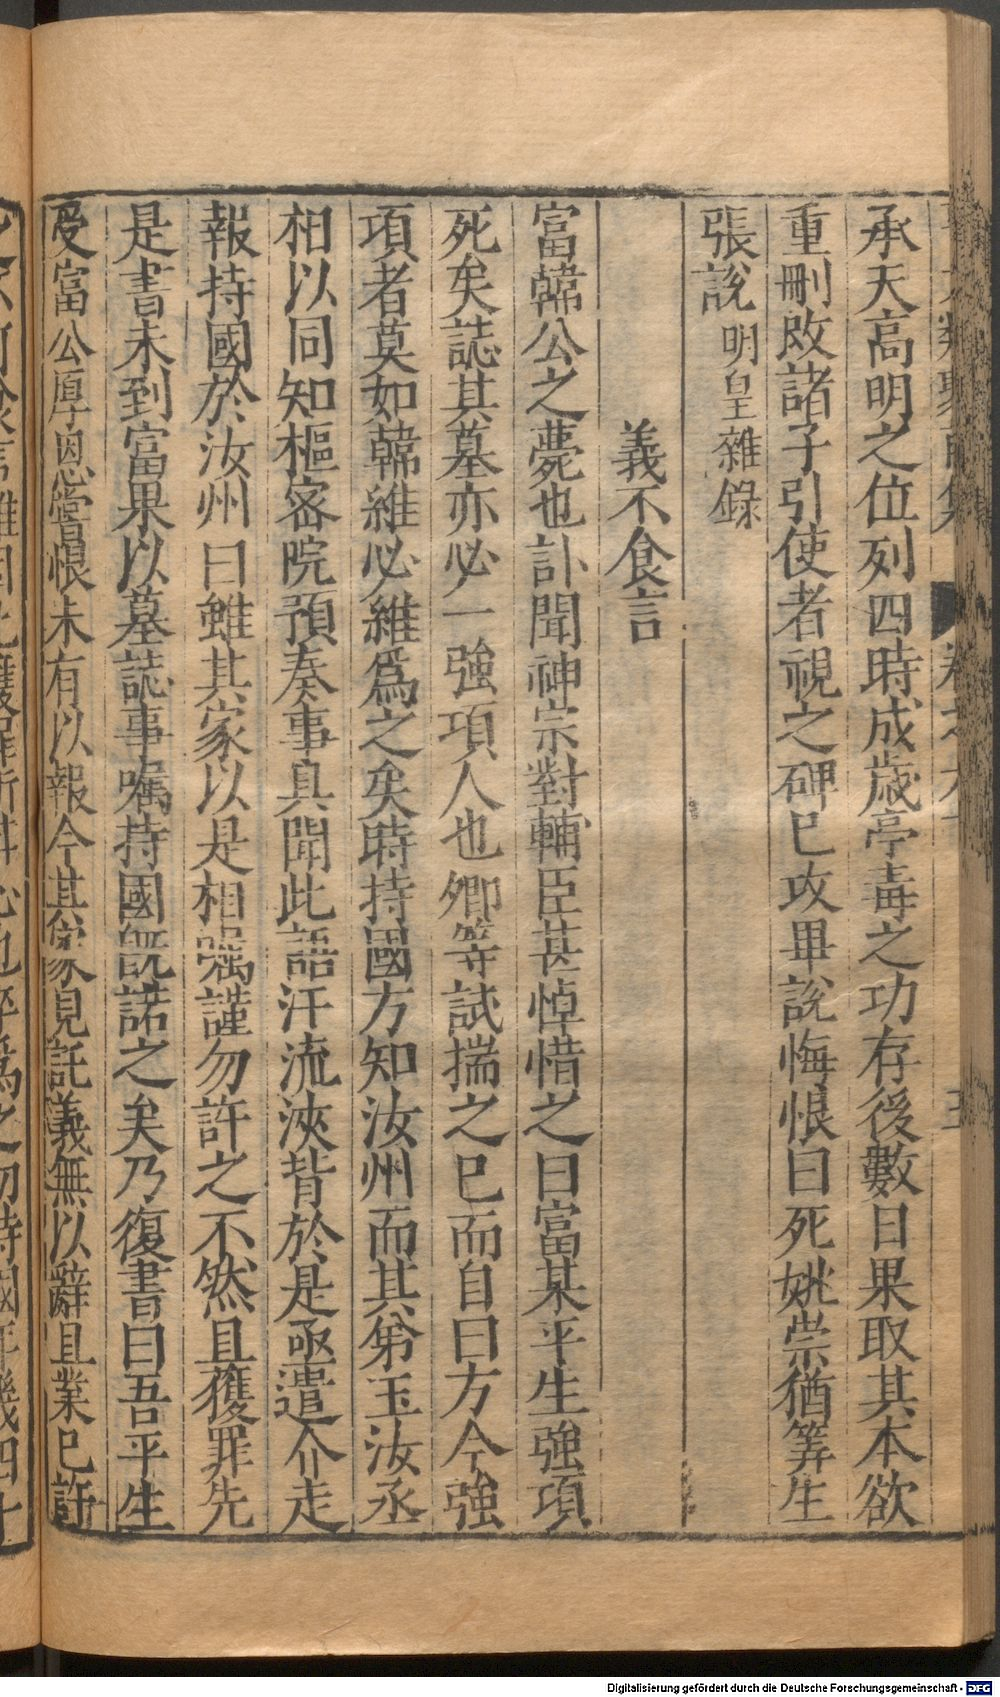 承天高明之位列四時成歲亭毒之功存後數日果取其本欲
重刪改諸子引使者視之碑已攻畢說悔恨曰死姚崇猶筭生
張說明皇雜錄
義不食言
富韓公之薨也訃聞神宗對輔臣甚悼惜之曰富某平生強項
死矣誌其墓亦必一強項人也卿等試揣之已而自曰方今強
項者莫如韓維必維爲之矣時持國方知汝州而其弟玉汝丞
相以同知樞密院預奏事具聞此語汗流浹背於是亟遣介走
報持國於汝州曰雖其家以是相囑謹勿許之不然且獲罪先
是書未到富果以墓誌事囑持國旣諾之矣乃復書曰吾平生
受富公厚恩嘗恨未有以報今其家見託義無以辭且業已許
Digitalisierung gefördert durch die Deutsche Forschungsgemeinschaft - DFG